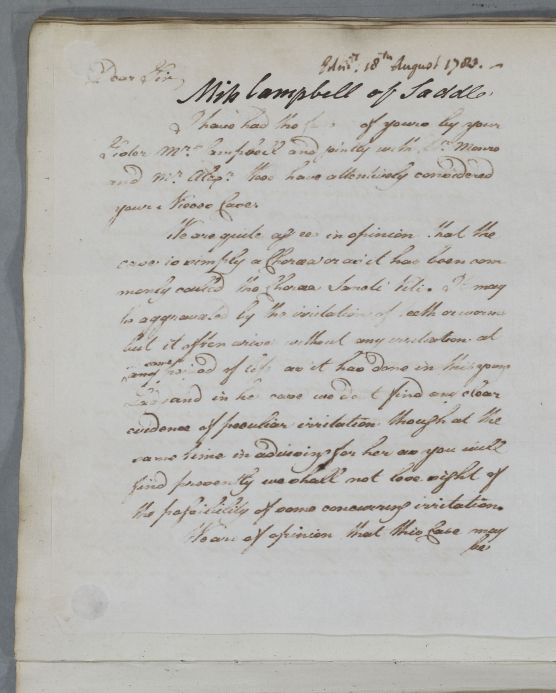 Edinr. 18th August 1783.
Dear Sir,
Miss Campbell of Saddle.
I have had the of yours by your
Sister Mrs Campbell and jointly with Dr Monro
and Mr Alexr Wood have attentively considered
your Niece's Case.
We are quite agreed in opinion that the
case is simply a Chorea or as it has been com
monly called the Chorea Sancti Viti. It may
be aggravated by the irritation of teeth or worms
but it often arises without any irritation at
any period of life as it has done in this young
Lady and in her case we don't find any clear
evidence of peculiar irritation though at the
same time in advising for her as you will
find presently we shall not lose sight of
the possibility of some concurring irritation.
We are of opinion that this Case may
be